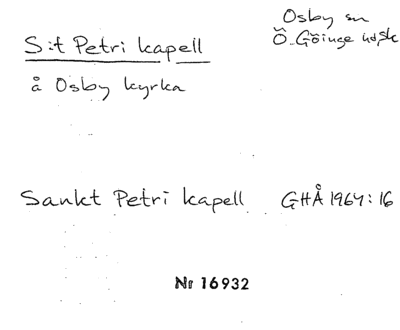 Osby sn
S:t Petri kapell
Ö. Göinge hd, Sk
å Osby kyrka
Sankt Petri kapell GHÅ 1964:16
Nr 16932